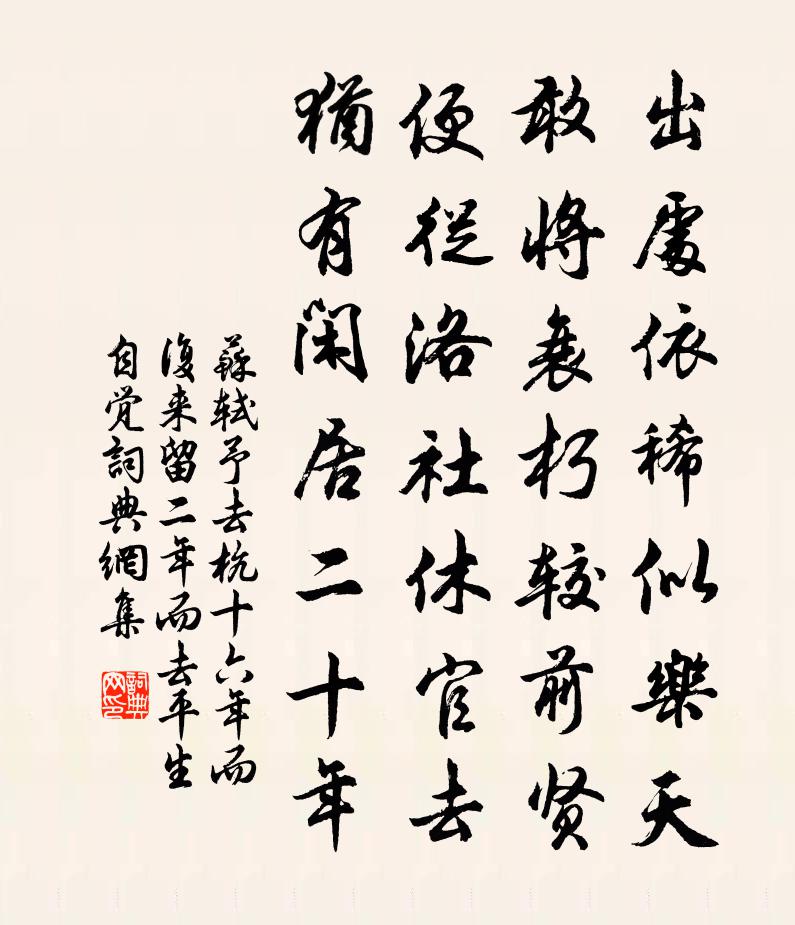 出處依稀似樂天
敢將衰朽較前賢
便從洛社休官去
猶有閑居二十年
蘇軾予去杭十六年而
復来留二年而去平生
自觉詞典網集
詞典网印